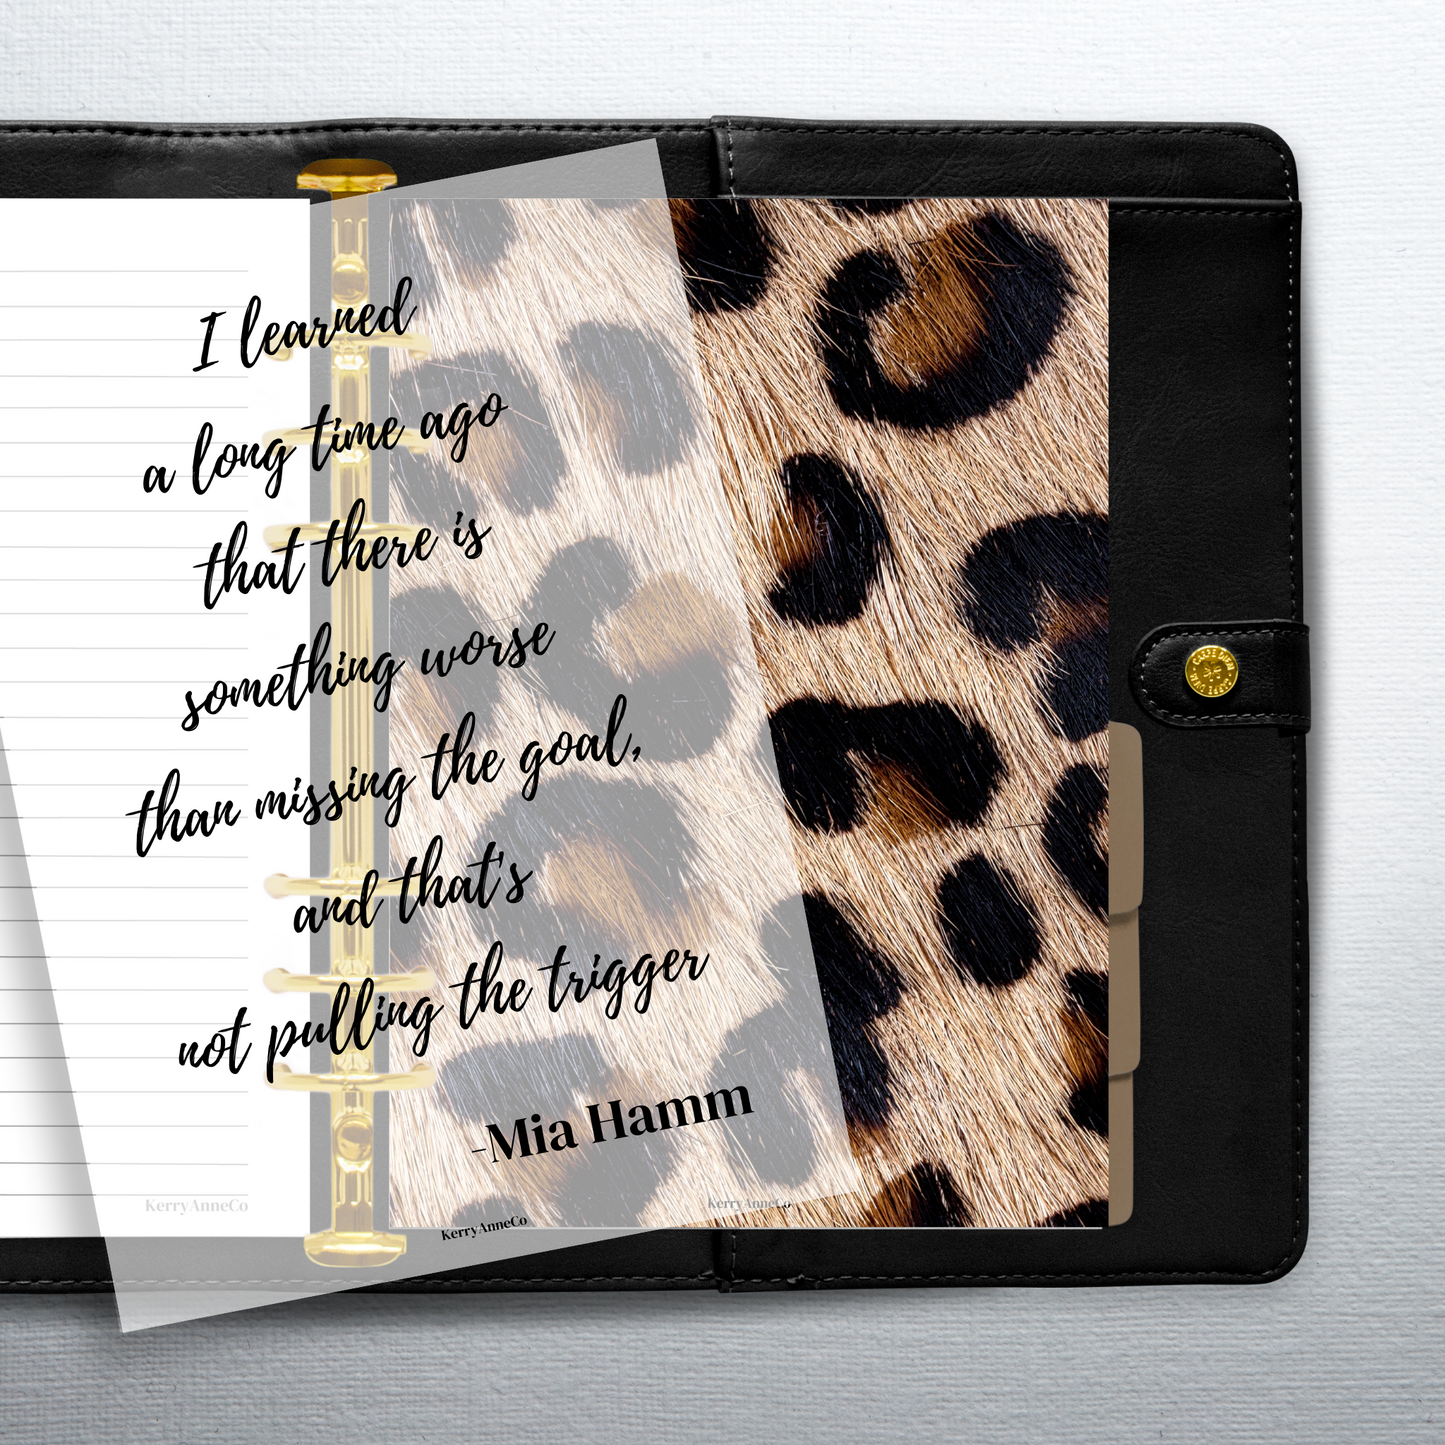 I learned
a long time ago
that there is
something worse
than missing the goal,
and that's
not pulling the trigger
-Mia Hamm
KerryAnneCo
KerryAnneCo
KerryAnneCo
CARPE DIEM
CARPE DIEM